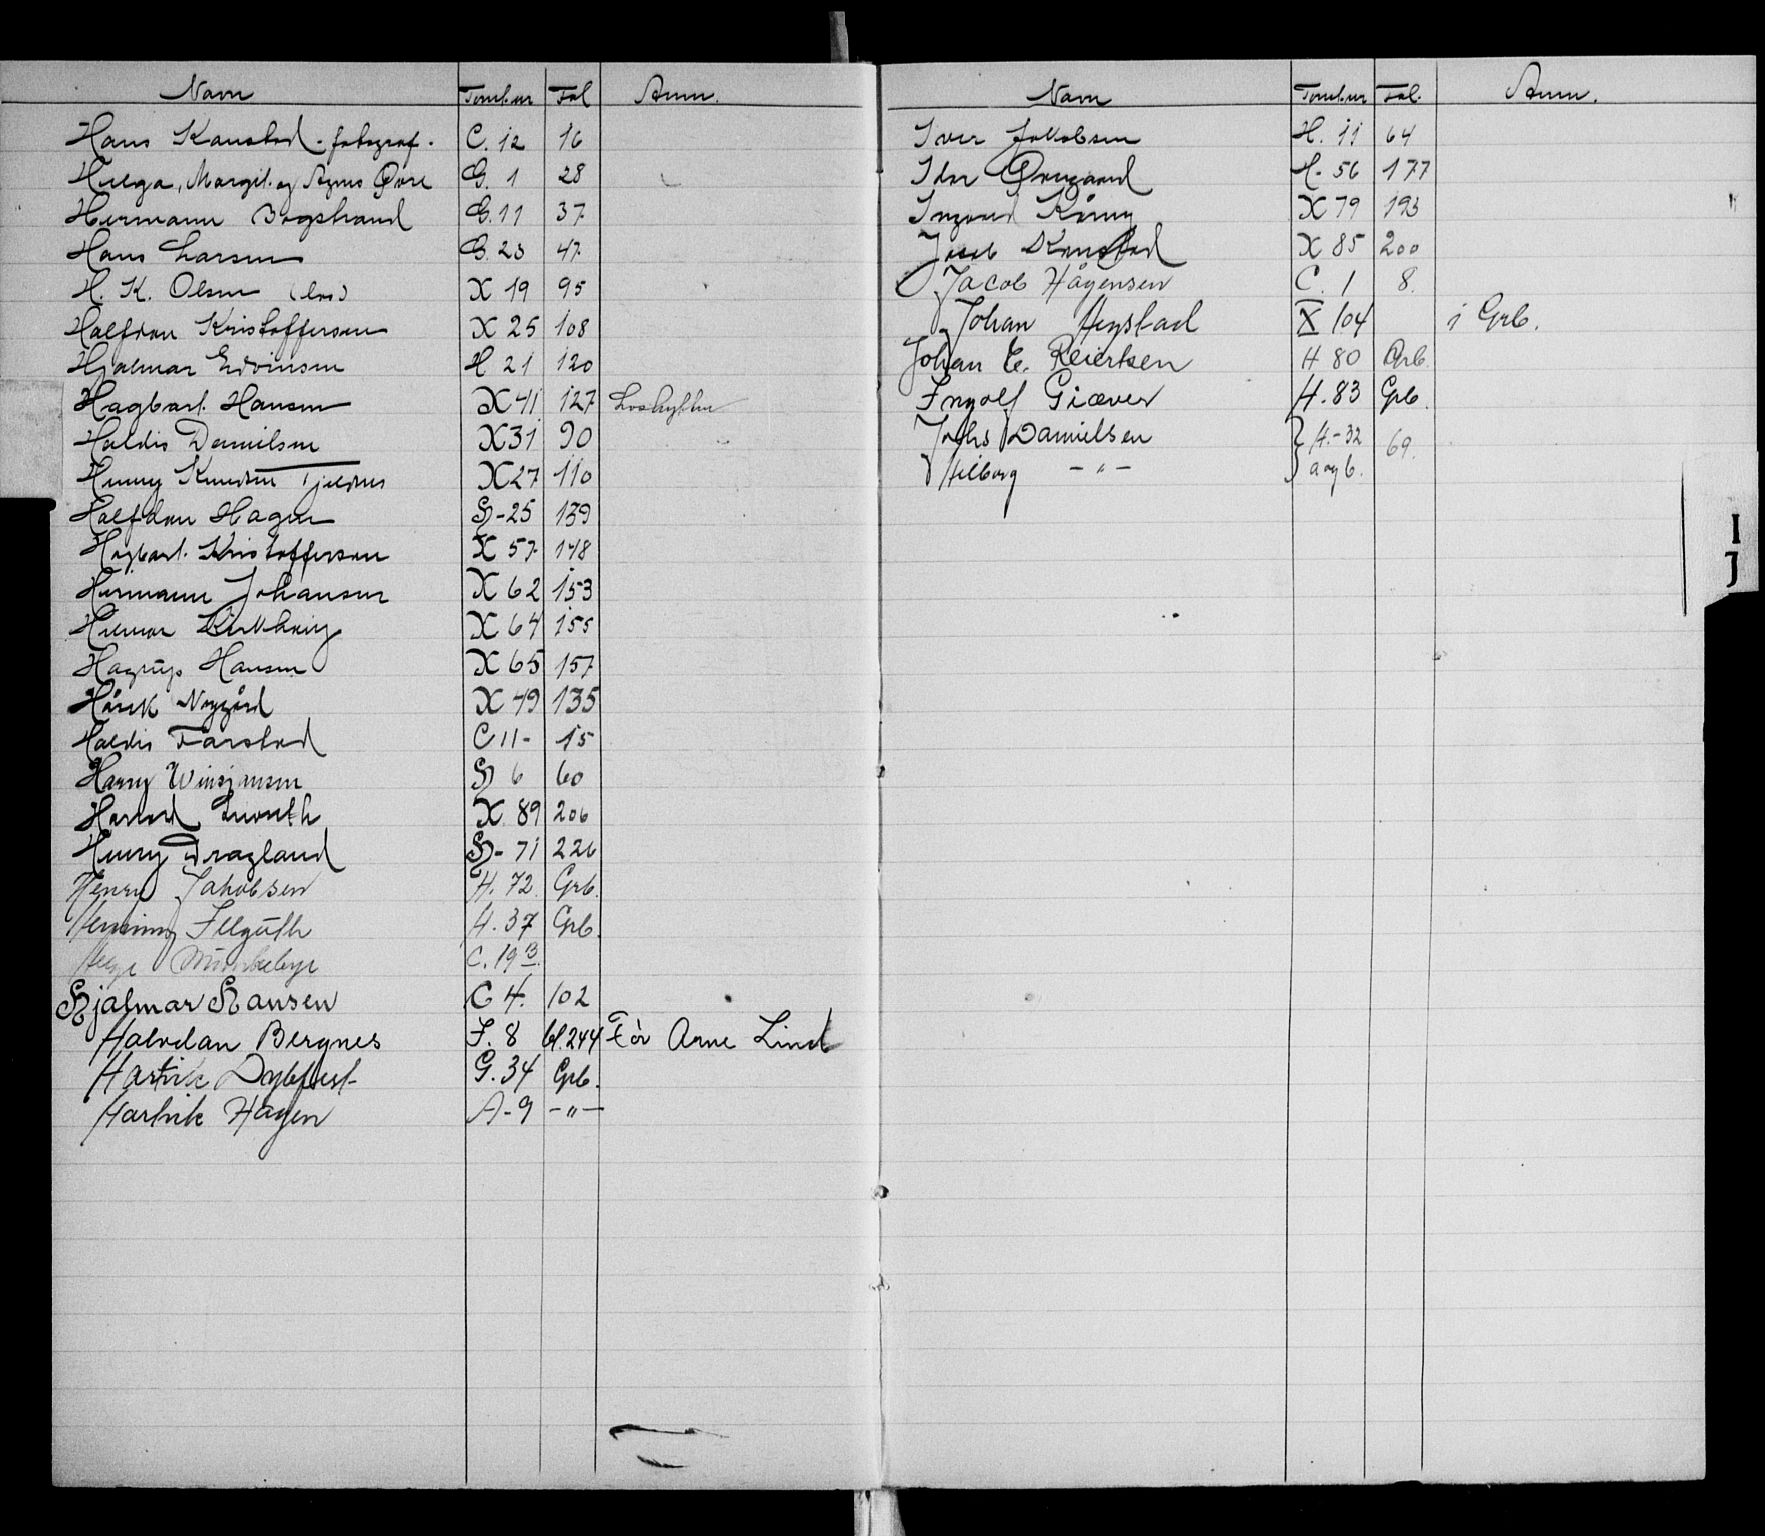 Navn Tomt.nr Fol Anm.
Hans Kanstad - fotograf - C. 12 16
Helga, Margit og Agnes Øvre G. 1 28
Hermann Bogstrand G. 11 37
Hans Larsen G. 23 47
H. K. Olsen (los) X 19 95
Halfdan Kristoffersen X 25 108
Hjalmar Edvinsen H 21 120
Hagbart Hansen X 41 127
Haldis Danielsen X 31 90
Henny Knudsen Tjeldnes X 27 110
Halfdan Hagen H - 25 139
Hagbart Kristoffersen X 57 148
Hermann Johansen X 62 153
Hilmar X 64 155
Hagrup Hansen X 65 157
Hårek Nygård X 49 135
Haldis Farstad C 11 - 15
Harry H 6 60
Harald X. 89 206
Henry Dragland H - 71 226
Henry Jakobsen H. 72 Grb.
Henning Illguth H. 37 Grb.
Helge C. 19 B.
Hjalmar Hansen C 4. 102
Halvdan Bergnes F. 8 bl. 244 Før Arne Lind
Hartvik Dybfest G. 34 Grb.
Hartvik Hagen A - 9 - " -
Navn Tomt.nr Fol. Anm.
Iver Jakobsen H. 11 64
Idar Ørngaard H. 56 177
Ingvard X 79 193
Jacob Kanstad X 85 200
Jacob Hågensen C. 1 8.
Johan Hegstad X 104 i Grb.
Johan E. Reiertsen H 80 Grb.
Ingolf Giæver H. 83 Grb.
Johs Danielsen } H. - 32 69.
Hilborg - " - } a og b.
I
J